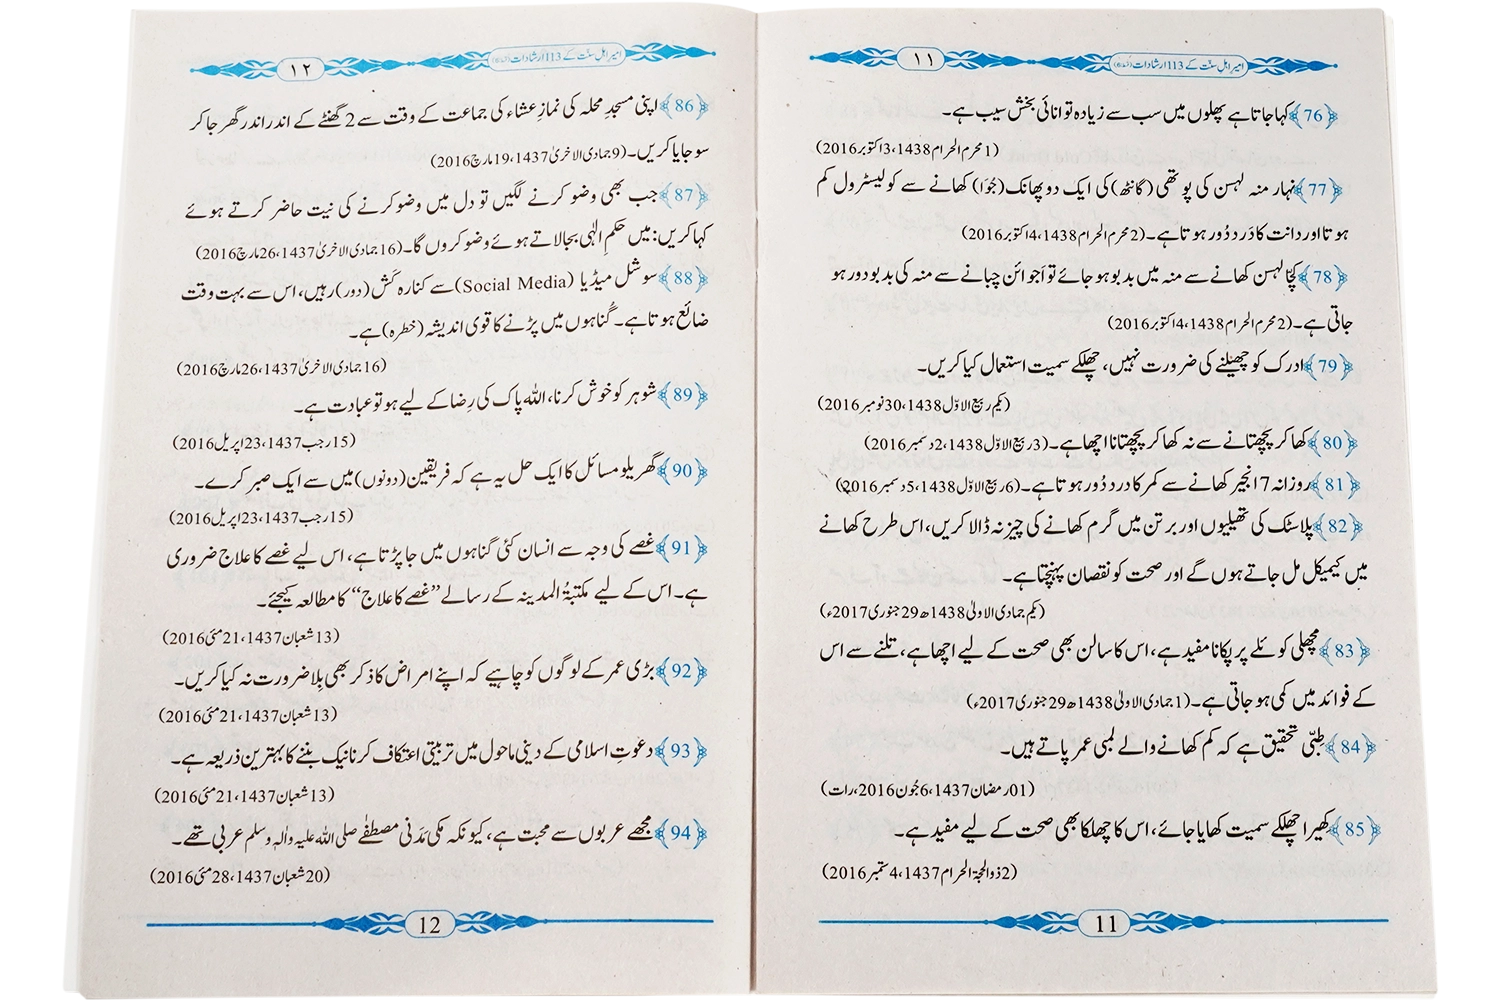 امیر اہل سنّت کے 113 ارشادات
۱۱
﴿76﴾ کہا جاتا ہے پھلوں میں سب سے زیادہ توانائی بخش سیب ہے۔
(1 محرم الحرام 1438، 3 اکتوبر 2016)
﴿77﴾ نہار منہ لہسن کی پوتھی (گانٹھ) کی ایک دو پھانک (جُوَا) کھانے سے کولیسٹرول کم
ہوتا اور دانت کا دَرد دُور ہوتا ہے۔ (2 محرم الحرام 1438، 4 اکتوبر 2016)
﴿78﴾ کچّا لہسن کھانے سے منہ میں بدبو ہو جائے تو اَجوائن چبانے سے منہ کی بدبو دور ہو
جاتی ہے۔ (2 محرم الحرام 1438، 4 اکتوبر 2016)
﴿79﴾ ادرک کو چھیلنے کی ضرورت نہیں، چھلکے سمیت استعمال کیا کریں۔
(یکم ربیع الاوّل 1438، 30 نومبر 2016)
﴿80﴾ کھا کر پچھتانے سے نہ کھا کر پچھتانا اچھا ہے۔ (3 ربیع الاوّل 1438، 2 دسمبر 2016)
﴿81﴾ روزانہ 7 انجیر کھانے سے کمر کا درد دُور ہوتا ہے۔ (6 ربیع الاوّل 1438، 5 دسمبر 2016)
﴿82﴾ پلاسٹک کی تھیلیوں اور برتن میں گرم کھانے کی چیز نہ ڈالا کریں، اس طرح کھانے
میں کیمیکل مل جاتے ہوں گے اور صحت کو نقصان پہنچتا ہے۔
(یکم جمادی الاولیٰ 1438ھ 29 جنوری 2017ء)
﴿83﴾ مچھلی کوئلے پر پکانا مفید ہے، اس کا سالن بھی صحت کے لیے اچھا ہے، تلنے سے اس
کے فوائد میں کمی ہو جاتی ہے۔ (1 جمادی الاولیٰ 1438ھ 29 جنوری 2017ء)
﴿84﴾ طبّی تحقیق ہے کہ کم کھانے والے لمبی عمر پاتے ہیں۔
(01 رمضان 1437، 6 جُون 2016، رات)
﴿85﴾ کھیرا چھلکے سمیت کھایا جائے، اس کا چھلکا بھی صحت کے لیے مفید ہے۔
(2 ذوالحجۃ الحرام 1437، 4 ستمبر 2016)
11
امیر اہل سنّت کے 113 ارشادات
۱۲
﴿86﴾ اپنی مسجدِ محلہ کی نمازِ عشاء کی جماعت کے وقت سے 2 گھنٹے کے اندر اندر گھر جا کر
سو جایا کریں۔ (9 جمادی الاخریٰ 1437، 19 مارچ 2016)
﴿87﴾ جب بھی وضو کرنے لگیں تو دل میں وضو کرنے کی نیت حاضر کرتے ہوئے
کہا کریں: میں حکمِ الٰہی بجا لاتے ہوئے وضو کروں گا۔ (16 جمادی الاخریٰ 1437، 26 مارچ 2016)
﴿88﴾ سوشل میڈیا (Social Media) سے کنارہ کَش (دور) رہیں، اس سے بہت وقت
ضائع ہوتا ہے۔ گُناہوں میں پڑنے کا قوی اندیشہ (خطرہ) ہے۔
(16 جمادی الاخریٰ 1437، 26 مارچ 2016)
﴿89﴾ شوہر کو خوش کرنا، اللہ پاک کی رِضا کے لیے ہو تو عبادت ہے۔
(15 رجب 1437، 23 اپریل 2016)
﴿90﴾ گھریلو مسائل کا ایک حل یہ ہے کہ فریقین (دونوں) میں سے ایک صبر کرے۔
(15 رجب 1437، 23 اپریل 2016)
﴿91﴾ غصے کی وجہ سے انسان کئی گناہوں میں جا پڑتا ہے، اس لیے غصے کا علاج ضروری
ہے۔ اس کے لیے مکتبۃُ المدینہ کے رسالے ”غصے کا علاج“ کا مطالعہ کیجئے۔
(13 شعبان 1437، 21 مئی 2016)
﴿92﴾ بڑی عمر کے لوگوں کو چاہیے کہ اپنے امراض کا ذکر بھی بِلا ضرورت نہ کیا کریں۔
(13 شعبان 1437، 21 مئی 2016)
﴿93﴾ دعوتِ اسلامی کے دینی ماحول میں تربیتی اعتکاف کرنا نیک بننے کا بہترین ذریعہ ہے۔
(13 شعبان 1437، 21 مئی 2016)
﴿94﴾ مجھے عربوں سے محبت ہے، کیونکہ مکی مَدَنی مصطفٰے صلی اللہ علیہ واٰلہٖ وسلم عربی تھے۔
(20 شعبان 1437، 28 مئی 2016)
12